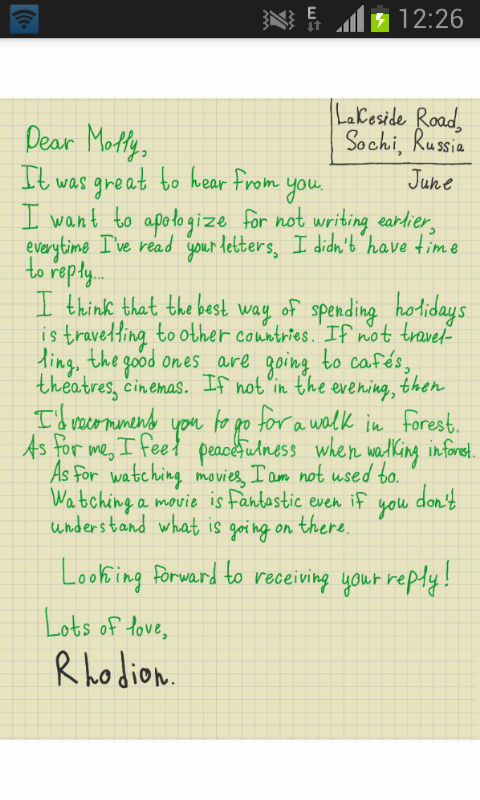 E 12:26
Lakeside Road,
Sochi, Russia
June
Dear Molly,
It was great to hear from you.
I want to apologize for not writing earlier,
everytime I've read your letters, I didn't have time
to reply...
I think that the best way of spending holidays
is travelling to other countries. If not travel-
ling, the good ones are going to cafés,
theatres, cinemas. If not in the evening, then
I'd recommend you to go for a walk in forest.
As for me, I feel peacefulness when walking in forest.
As for watching movies, I am not used to.
Watching a movie is fantastic even if you don't
understand what is going on there.
Looking forward to receiving your reply!
Lots of love,
Rhodion.